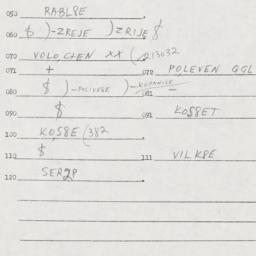 050 RABL8E
060 $ )-ZREJE )ZRIJE $
070 VOLO,CHEN XX (213032
071 + 072 POLEVEN GGL
080 $ )-POLIVE8E )- 081
090 $ 091 KO58ET
100 KO58E (382
110 $ 111 VILK8E
120 SER2P